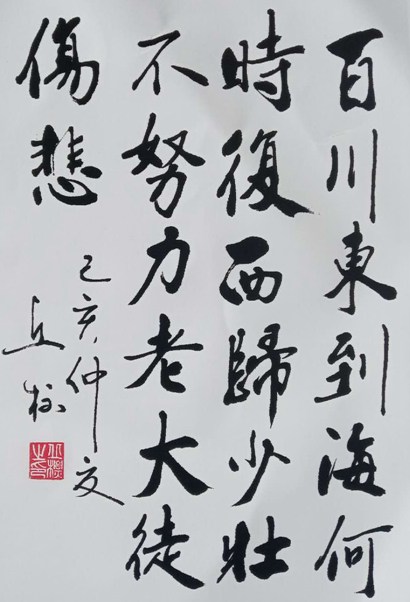 百川東到海何
時復西歸少壯
不努力老大徒
傷悲
己亥仲夏